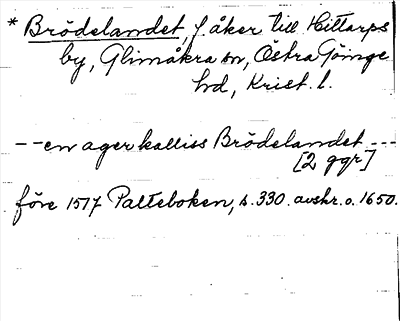 * Brödelandet, f. åker till Hittarps
by, Glimåkra sn, Östra Göinge
hd, Krist. l.
--en ager kalliss Brödelandet ---
[2 ggr]
före 1517 Palteboken, s. 330. avskr. o. 1650.